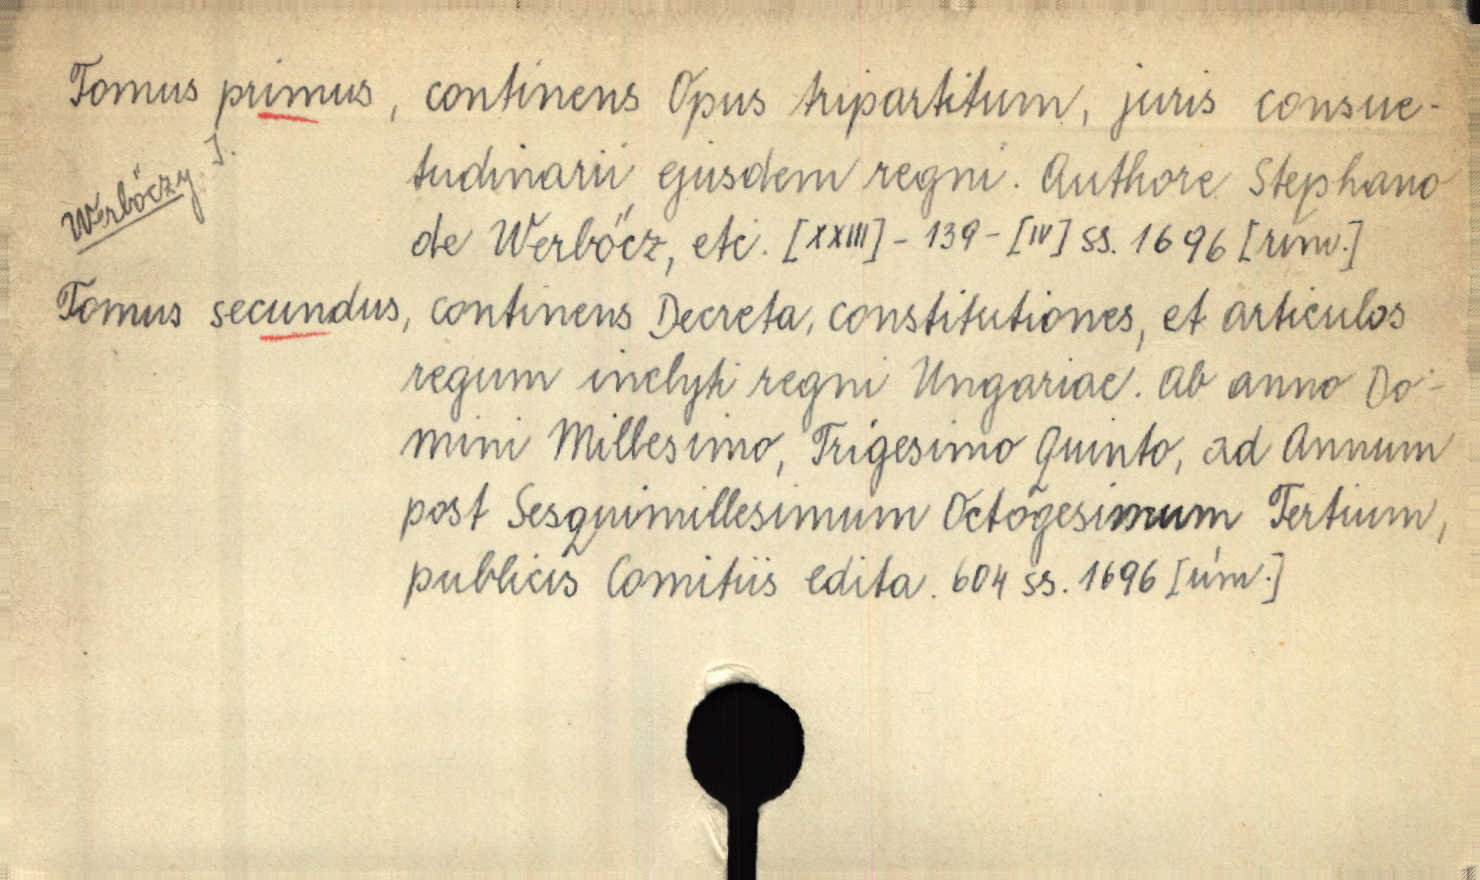 Tomus primus, continens Opus tripartitum, juris consue-
Werbőczy I.
tudinarii ejusdem regni. Authore Stephano
de Werbőcz, etc. [XXIII] - 139 - [IV] ss. 1696 [rim.]
Tomus secundus, continens Decreta, constitutiones, et articulos
regum inclyti regni Ungariae. Ab anno Do-
mini Millesimo, Trigesimo Quinto, ad Annum
post Sesquimillesimum Octogesimum Tertium,
publicis Comitiis edita. 604 ss. 1696 [rim.]